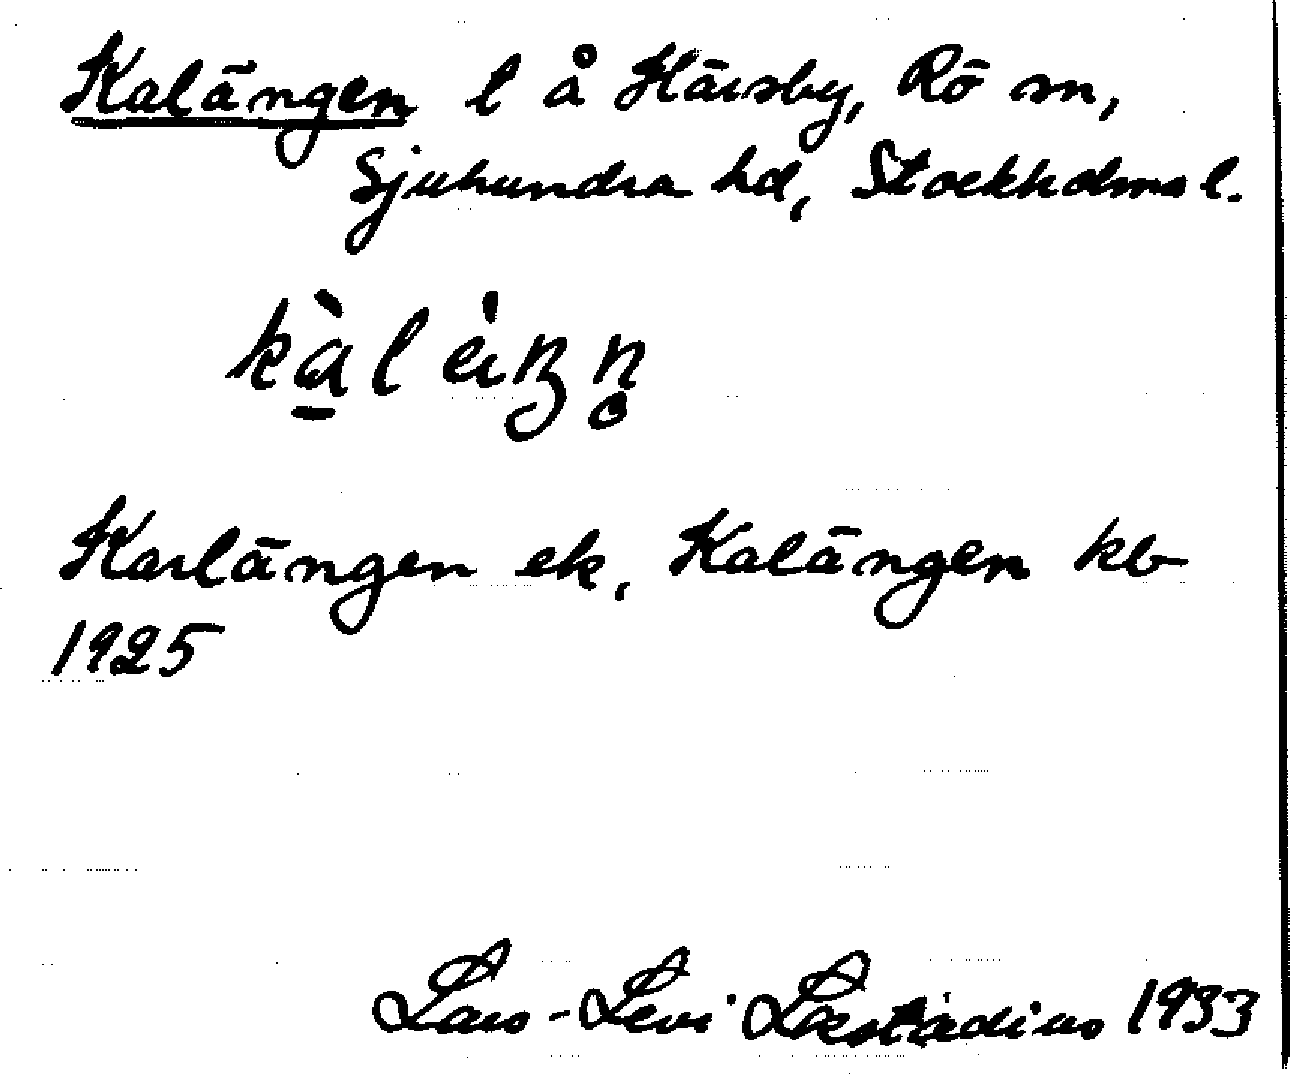 Kalängen l å Härsby, Rö sn,
Sjuhundra hd, Stockholms l.
Karlängen ek, Kalängen kb
1925
Lars-Levi Læstadius 1933